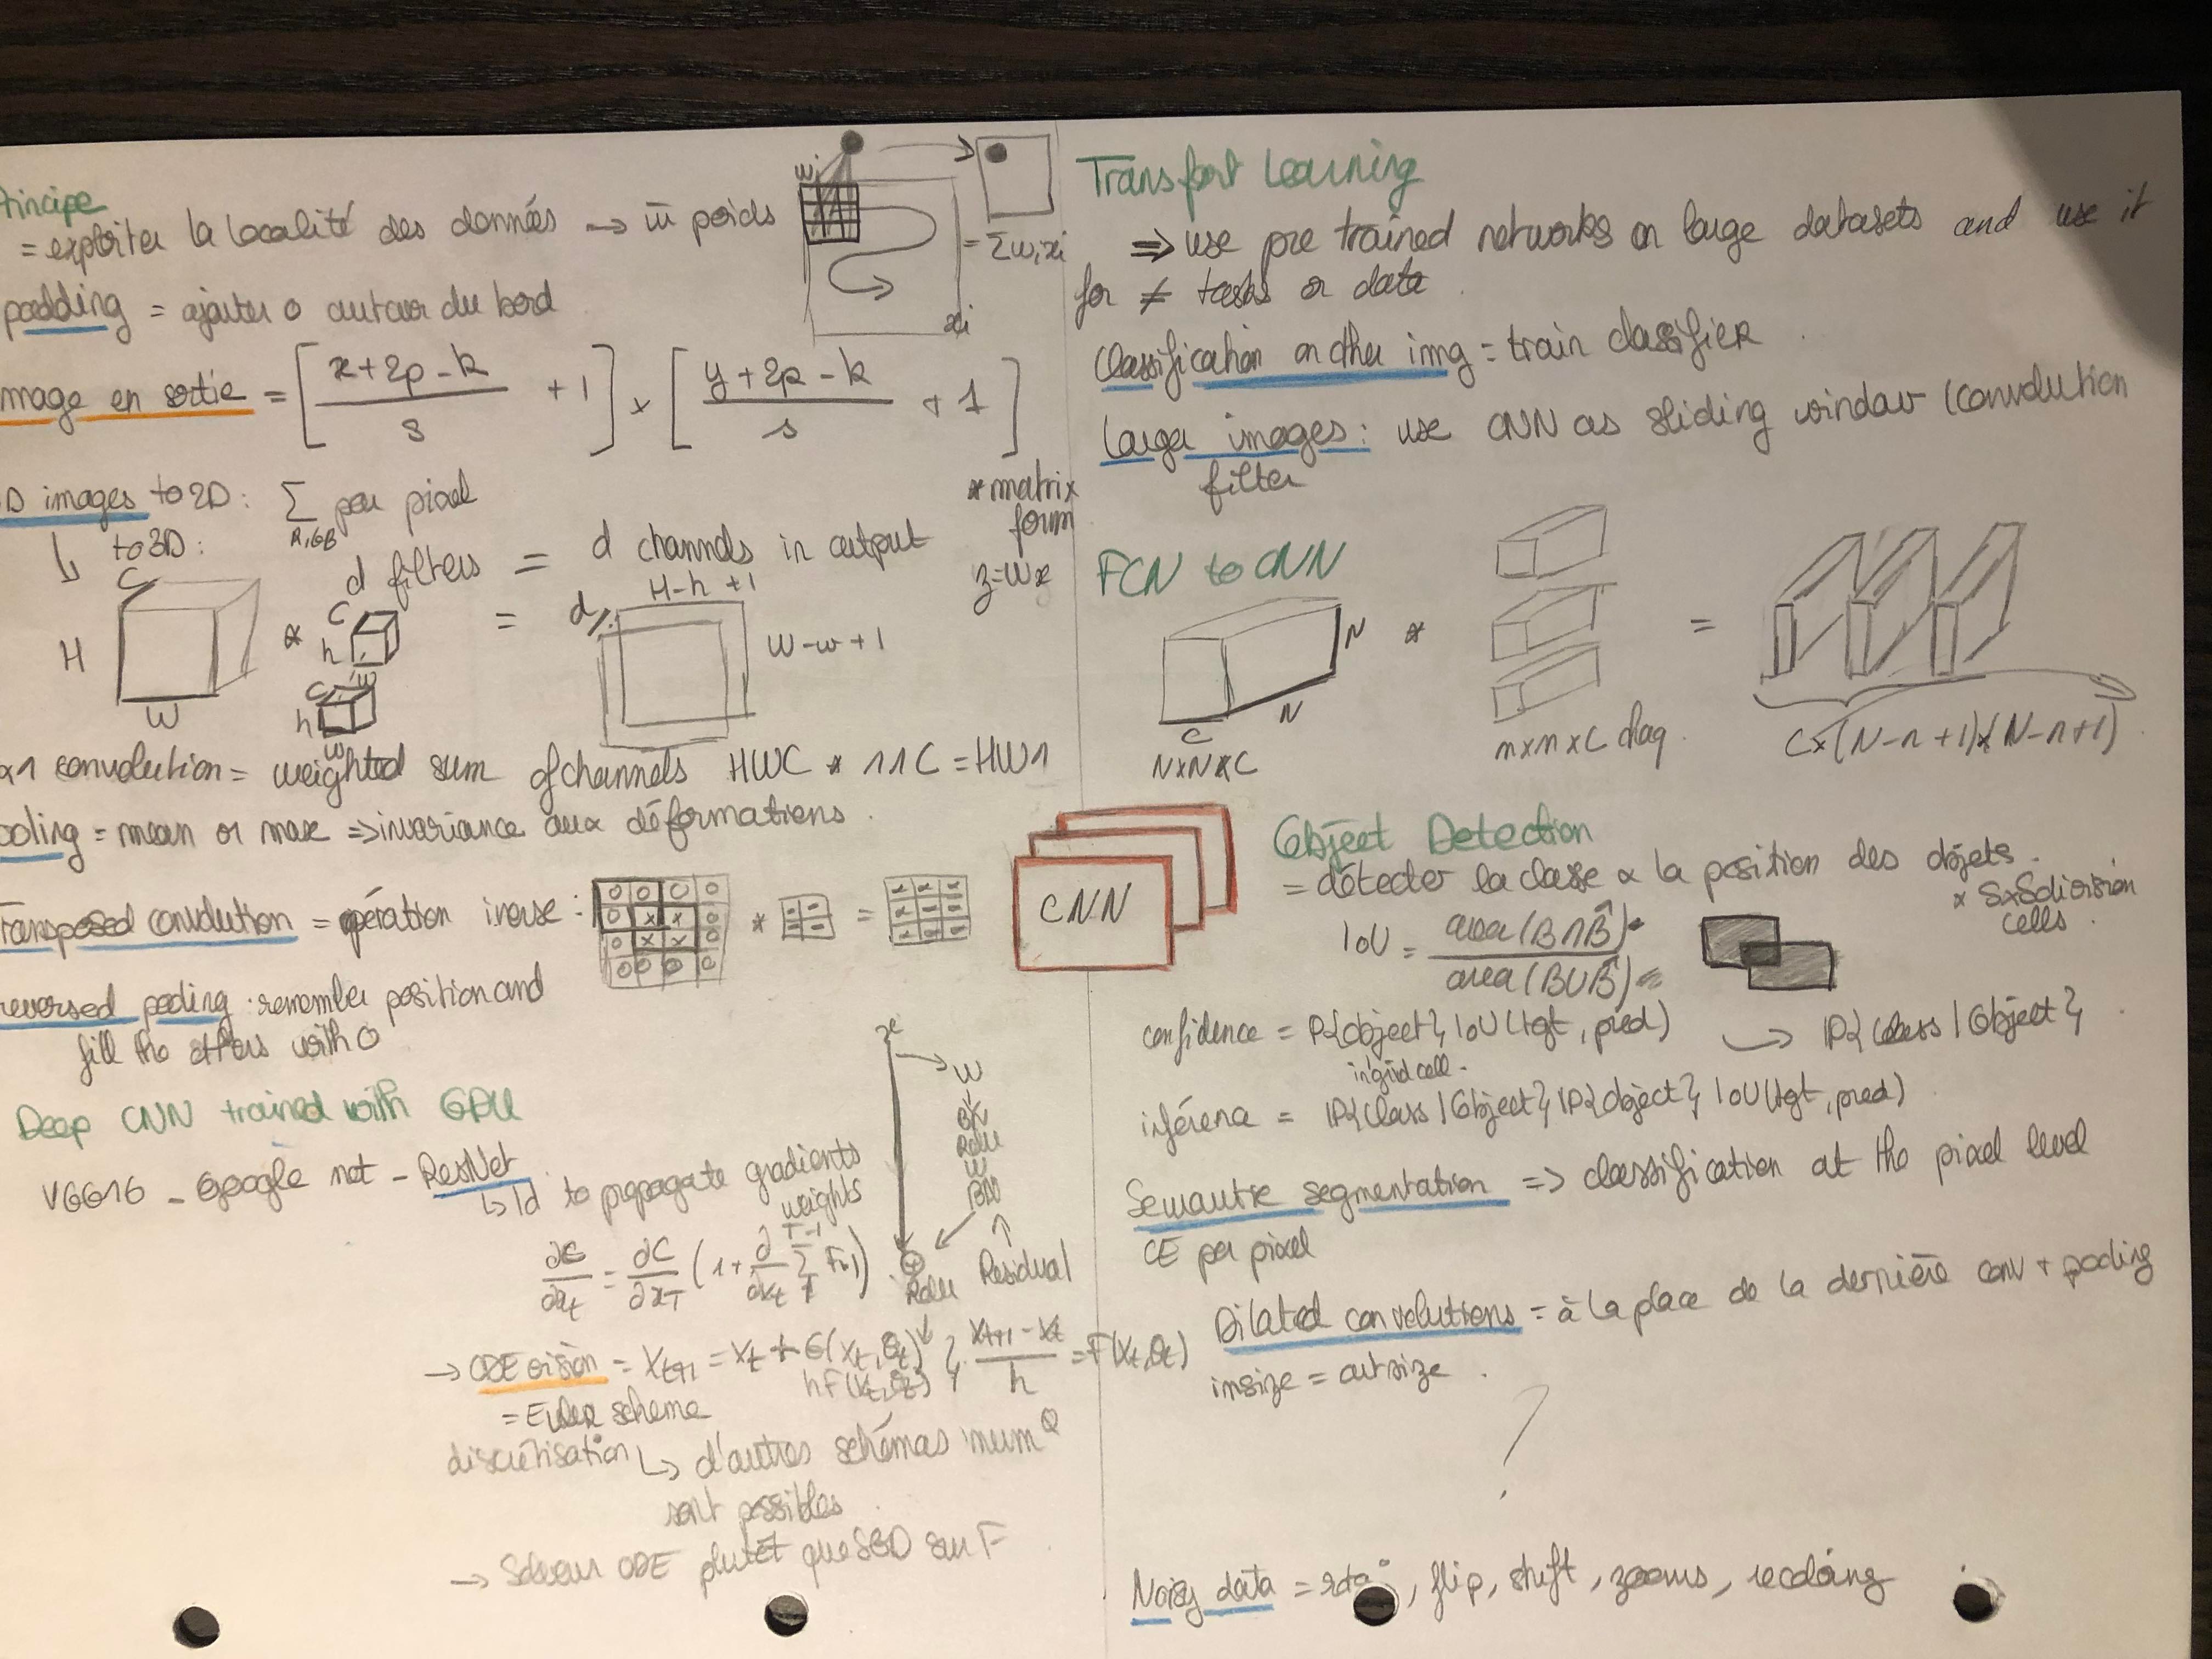 Principe
= exploiter la localité des données → m̄ poids
wi
= Σwixi
xi
padding = ajouter 0 autour du bord
mage en sortie = [x+2p-k / s + 1] x [y+2p-k / s + 1]
D images to 2D: Σ par pixel
R,G,B
↳ to 3D:
d filters = d channels in output
* matrix
form
z=Wx
C
H
W
*
C
h
w
C
h
w
=
d
H-h+1
W-w+1
x1 convolution = weighted sum of channels HWC * 11C = HW1
ooling = mean or max => invariance aux déformations.
Transposed convolution = opération inverse:
0 0 0 0
0 x x 0
0 x x 0
0 0 0 0
* =
reversed pooling: remember position and
fill the others with 0
Deep CNN trained with GPU
VGG16 - Google net - ResNet
↳ Id to propagate gradients
weights
∂C/∂xt = ∂C/∂xT (1+ ∂/∂xt Σ T-1 F())
x
W
BN
Relu
W
BN
⊕
Relu
Residual
→ ODE vision = Xt+1 = Xt + G(Xt,θt) ; Xt+1-Xt / h = F(Xt,θt)
hF(Xt,θt)
= Euler scheme
discrétisation ↳ d'autres schémas numQ
sont possibles.
→ Solveur ODE plutôt que SGD sur F
CNN
Transfert Learning
=> use pre trained networks on large datasets and use it
for ≠ tasks or data.
Classification on other img = train classifier.
Larger images: use CNN as sliding window (convolution
filter
FCN to CNN
N
N
C
NxNxC
*
nxnxC diag.
=
Cx(N-n+1)x(N-n+1)
Object Detection
= détecter la classe & la position des objets.
* SxS division
cells.
IoU = area(B∩B̂) / area(B∪B̂)
confidence = P{Object} IoU(tgt, pred) → P{Class | Object}.
in grid cell.
inférence = P{Class | Object} P{Object} IoU(tgt, pred)
Semantic segmentation => classification at the pixel level
CE per pixel
Dilated convolutions = à la place de la dernière conv + pooling
insize = outsize.
?
Noisy data = , flip, shift, zooms,